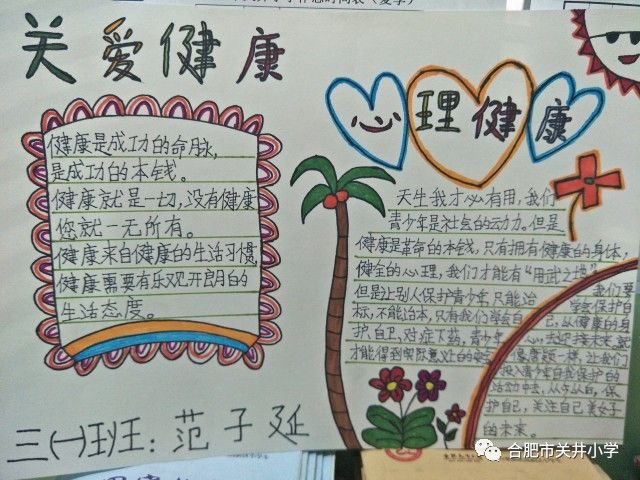 关爱健康
健康是成功的命脉,
是成功的本钱。
健康就是一切,没有健康
您就一无所有。
健康来自健康的生活习惯,
健康需要有乐观开朗的
生活态度。
三(一)班:范子延
心理健康
天生我才必有用,我们
青少年是社会的动力。但是
健康是革命的本钱,只有拥有健康的身体,
健全的心理,我们才能有“用武之地”
但是让别人保护青少年只能治
标,不能治本,只有我们学会自
护、自卫,对症下药,青少年
才能得到
我们要
学会保护自
己,从健康的身
心去迎接未来,
一样,让我们
投入青少年自我保护的
活动中去,从今从自,保
护自己,关注自己美好
的未来。
合肥市关井小学